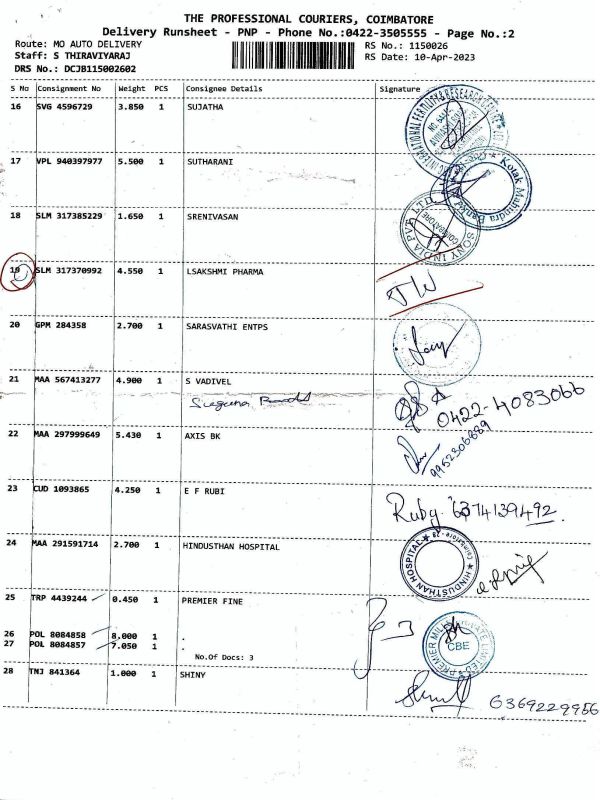 THE PROFESSIONAL COURIERS, COIMBATORE
Delivery Runsheet - PNP - Phone No.:0422-3505555 - Page No.:2
Route: MO AUTO DELIVERY
RS No.: 1150026
Staff: S THIRAVIYARAJ
RS Date: 10-Apr-2023
DRS No.: DCJB115002602
1150026
S No Consignment No Weight PCS Consignee Details Signature
16 SVG 4596729 3.850 1 SUJATHA
INTERNATIONAL FERTILITY & RESEARCH
17 VPL 940397977 5.500 1 SUTHARANI
Kotak Mahindra Bank
18 SLM 317385229 1.650 1 SRENIVASAN
SONY INDIA PVT. LTD.
COIMBATORE
19 SLM 317370992 4.550 1 LSAKSHMI PHARMA
20 GPM 284358 2.700 1 SARASVATHI ENTPS
21 MAA 567413277 4.900 1 S VADIVEL
0422-4083066
22 MAA 297999649 5.430 1 AXIS BK
9952306889
23 CUD 1093865 4.250 1 E F RUBI
Ruby 6374139492
24 MAA 291591714 2.700 1 HINDUSTHAN HOSPITAL
HINDUSTHAN HOSPITAL
Coimbatore-28
25 TRP 4439244 0.450 1 PREMIER FINE
26 POL 8084858 8.000 1 .
27 POL 8084857 7.050 1 .
No.Of Docs: 3
CBE
28 TNJ 841364 1.000 1 SHINY
6369229956